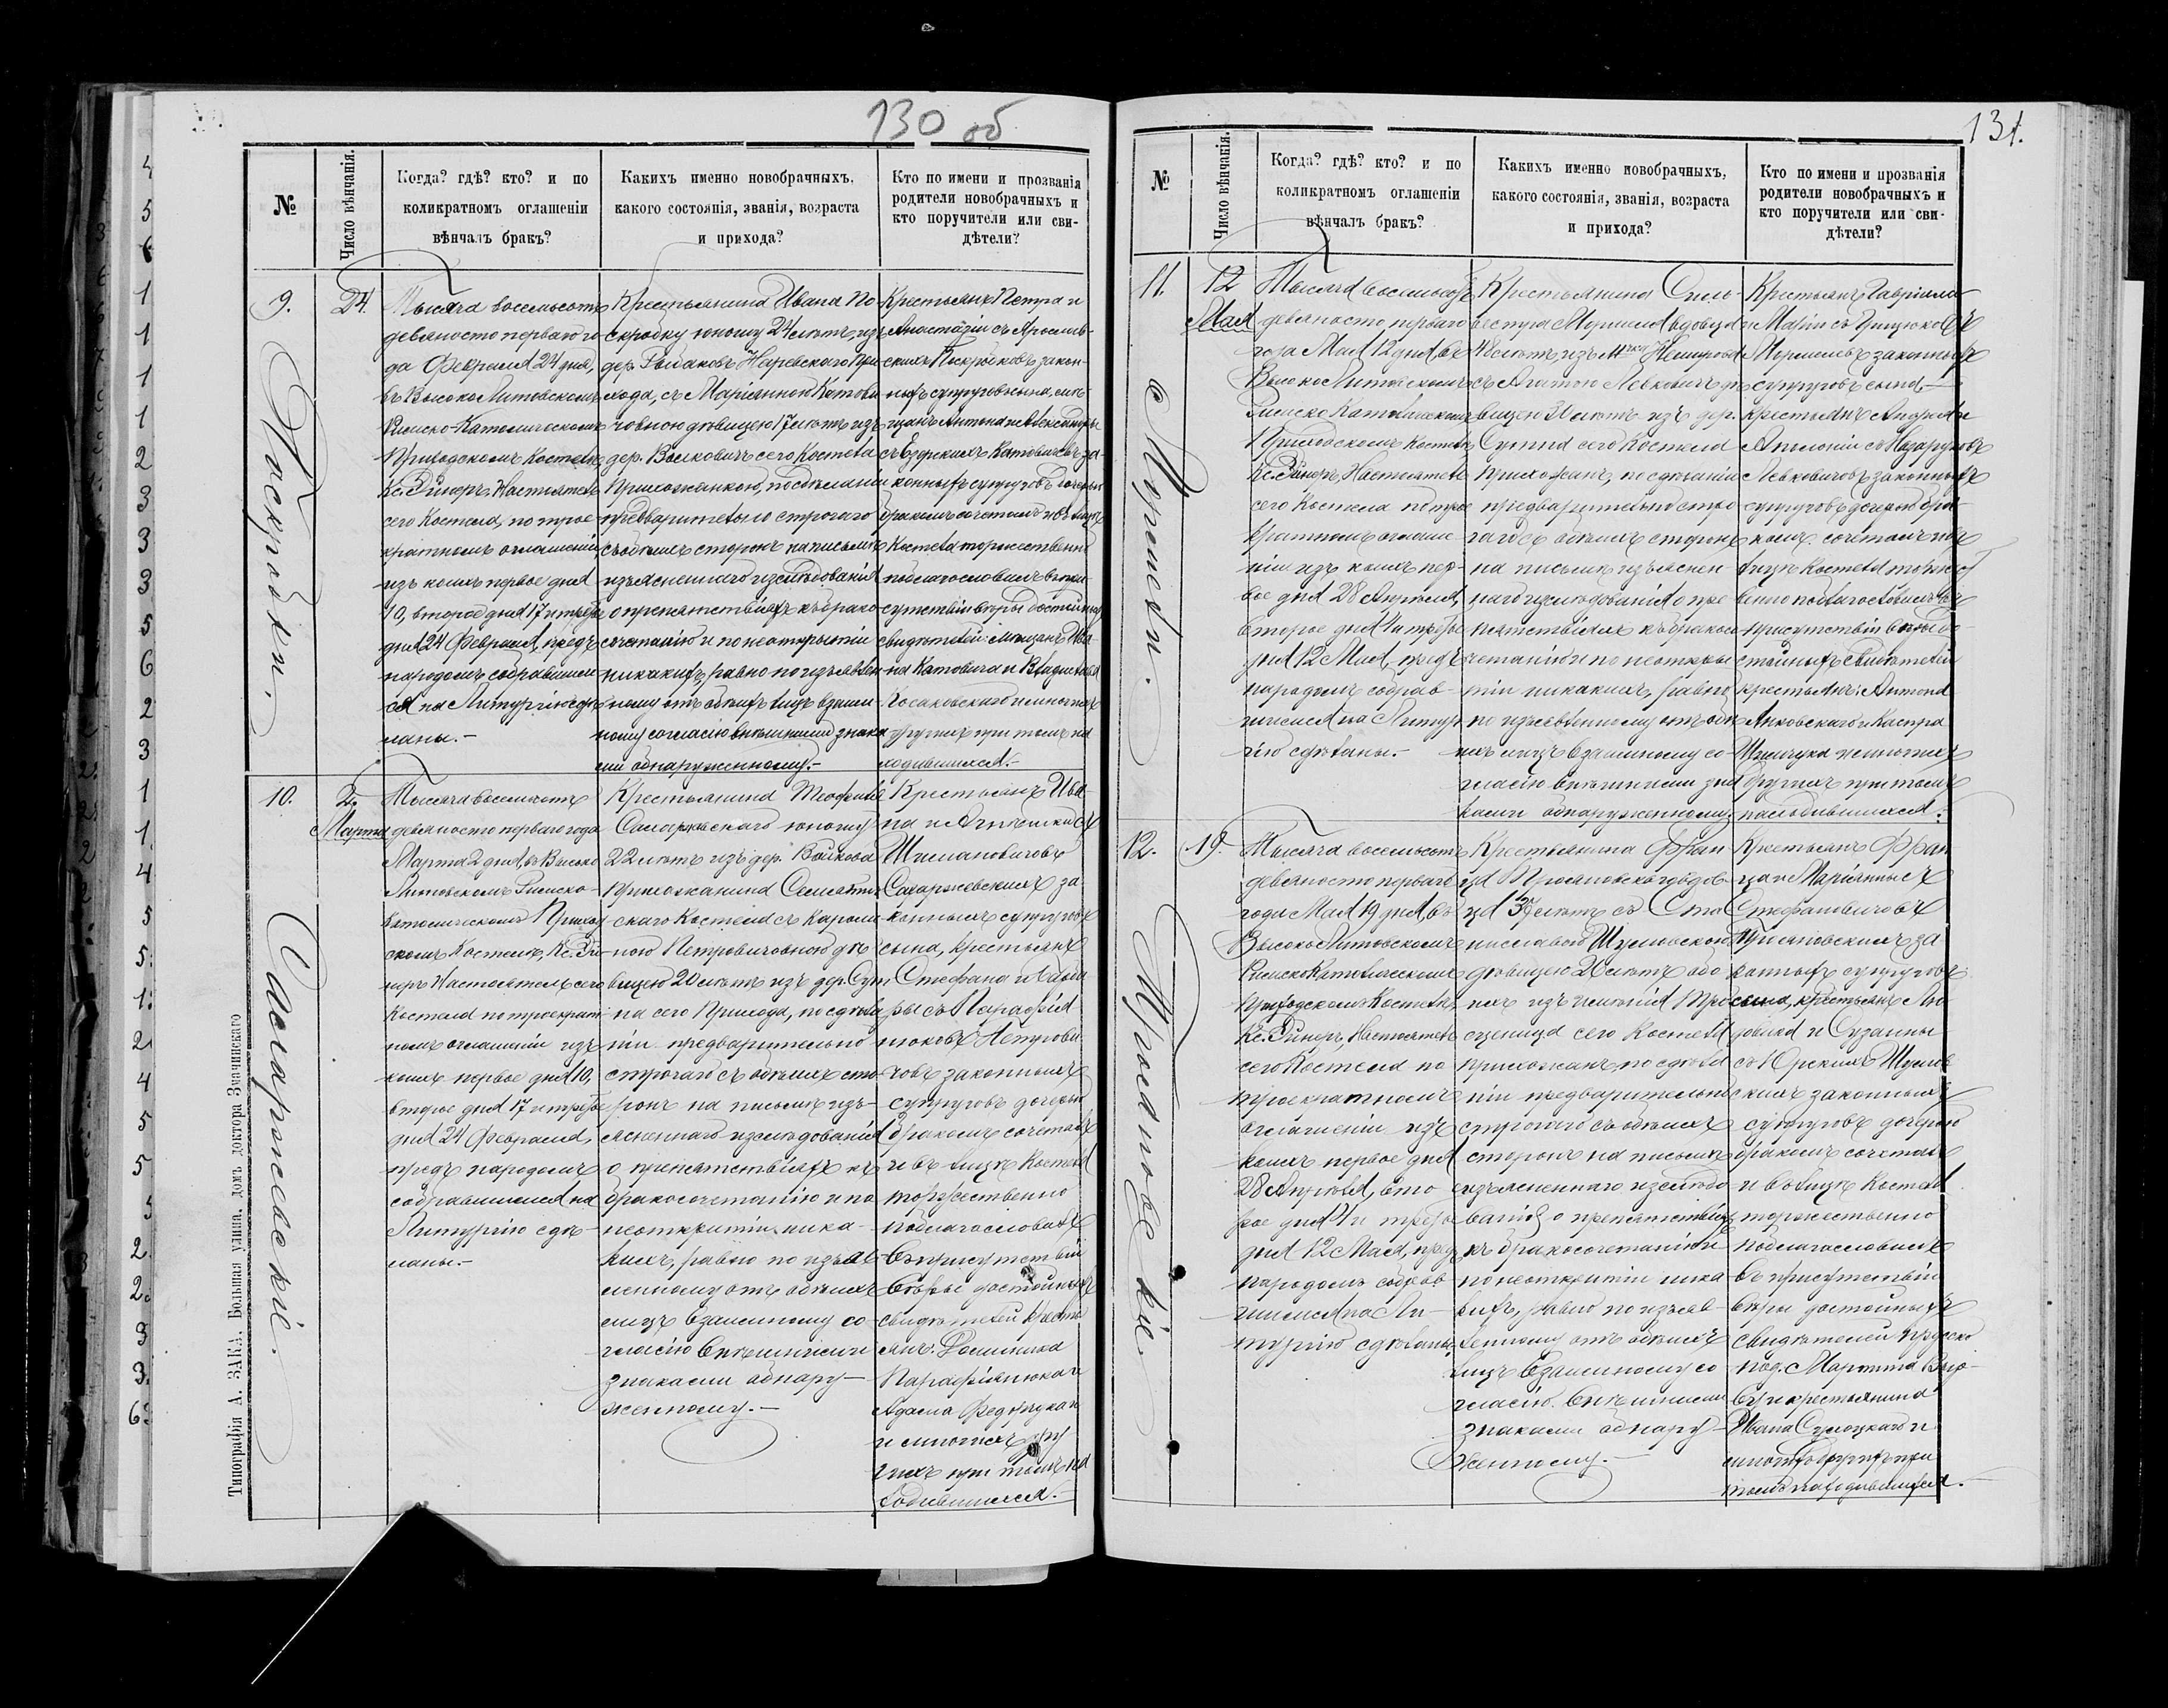 130 об
№
Число вѣнчанія.
Когда? гдѣ? кто? и по
коликратномъ оглашеніи
вѣнчалъ бракъ?
Какихъ именно новобрачныхъ,
какого состоянія, званія, возраста
и прихода?
Кто по имени и прозванія
родители новобрачныхъ и
кто поручители или сви-
дѣтели?
9.
24.
Тысяча восемьсотъ
девяносто перваго го
да Февраля 24 дня,
въ Высоко Литовскомъ
Римско-Католическомъ
Приходскомъ Костелѣ
Кс. Эйнеръ, Настоятель
сего Костела, по трое
кратномъ оглашеніи,
изъ коихъ первое дня
10, второе дня 17 и третье
дня 24 Февраля, предъ
народомъ собравшим
ся на Литургію сдѣ
ланы.-
Крестьянина Ивана По
скробку юношу 24 лѣтъ, изъ
дер. Наревскаго При
хода, съ Маріанною Котови
човною дѣвицею 17 лѣтъ изъ
дер. Волковичъ сего Костела
Прихожанкою, по сдѣлани
предварительно строгаго
съ обѣихъ сторонъ на письмѣ
изъясненнаго изслѣдованія
о препятствіяхъ къ брако
сочетанію и по неоткрытіи
никакихъ, равно по изъявлен
ному отъ обѣихъ лицъ взаим
ному согласію внѣшними знака
ми обнаруженному.-
Крестьянъ Петра и
Анастазіи съ
законъ
ныхъ супруговъ сына, мѣ
щанъ Антона и Александры
съ Езерскихъ Котовичовъ за
конныхъ супруговъ дочерью
бракомъ сочеталъ и въ лицѣ
Костела торжественно
поблагословилъ въ при-
сутствіи вѣры достойныхъ
свидѣтелей: мѣщанъ Ива
на Катовича и Владислава
Косаковскаго и многихъ
другихъ при томъ на
ходившихся.-
10.
2.
Марта
Сахаржевскіе.
Тысяча восемьсотъ
девяносто перваго года
Марта 2 дня, въ Высоко
Литовскомъ Римско-
Католическомъ Приход
скомъ Костелѣ, Кс. Эй-
неръ Настоятель сего
Костела по троекрат
номъ оглашеніи изъ
коихъ первое дня 10,
второе дня 17 и третье
дня 24 Февраля,
предъ народомъ
собравшимся на
Литургію сдѣ-
ланы.-
Крестьянина Теофила
Сахаржевскаго юношу
22 лѣтъ изъ дер. Войкова
Прихожанина Семятич
скаго Костела съ Кароли
ною Петровичовною дѣ
вицею 20 лѣтъ изъ дер. Сут
на сего Прихода, по сдѣла
ніи предварительно
строгаго съ обѣихъ сто
ронъ на письмѣ изъ-
ясненнаго изслѣдованія
о препятствіяхъ къ
бракосочетанію и по
неоткрытіи ника-
кихъ, равно по изъяв
ленному отъ обѣихъ
лицъ взаимному со-
гласію внѣшними
знаками обнару-
женному.-
Крестьянъ Ива-
на и Агнешки съ
Шимановичовъ
Сахаржевскихъ за-
конныхъ супруговъ
сына, крестьянъ
Стефана и Варва
ры съ Парафія
нюковъ Петрови
човъ законныхъ
супруговъ дочерью
бракомъ сочеталъ
и въ лицѣ Костела
торжественно
поблагословилъ
въ присутствіи
вѣры достойныхъ
свидѣтелей крестъ
янъ: Доминика
Парафіанюка и
Адама Федорука и
и многихъ дру
гихъ при томъ на
ходившихся.-
Типографія А. ЗАКА. Большая улица, домъ доктора Значинскаго
131.
№
Число вѣнчанія.
Когда? гдѣ? кто? и по
коликратномъ оглашеніи
вѣнчалъ бракъ?
Какихъ именно новобрачныхъ,
какого состоянія, званія, возраста
и прихода?
Кто по имени и прозванія
родители новобрачныхъ и
кто поручители или сви-
дѣтели?
11.
12
Мая
Тысяча восемьсотъ
девяносто перваго
года Мая 12 дня, въ
Высоко Литовскомъ
Римско Католическомъ
Приходскомъ Костелѣ
Кс. Эйнеръ, Настоятель
сего Костела по трое
кратномъ оглаше-
ніи изъ коихъ пер-
вое дня 28 Апрѣля,
второе дня 1 и третье
дня 12 Мая, предъ
народомъ собрав-
шимся на Литур
гію сдѣланы.-
Крестьянина Силь-
вестра вдовца
48 лѣтъ, изъ Немирова
съ Агатою Левковичъ дѣ
вицею 30 лѣтъ изъ дер.
Сутна сего Костела
прихожанъ, по сдѣланіи
предварительно стро
гаго съ обѣихъ сторонъ
на письмѣ изъяснен-
наго изслѣдованія о пре
пятствіяхъ къ бракосо
четанію и по неоткры
тіи никакихъ, равно
по изъявленному отъ обѣ
ихъ лицъ взаимному со
гласію внѣшними зна
ками обнаруженному.
Крестьянъ Гавріила
и Маріи съ Грицюковъ
законныхъ
супруговъ сына,-
крестьянъ Андрея и
Аполоніи съ Назаруковъ
Левковичовъ законныхъ
супруговъ дочерью бра-
комъ сочеталъ и въ
лицѣ Костела торжест
венно поблагословилъ въ
присутствіи вѣры до-
стойныхъ свидѣтелей
крестьянъ: Антона
Янковскаго и Каспра
Шимчука и многихъ
другихъ при томъ
находившихся.
12.
19.
Трояновскіе.
Тысяча восемьсотъ
девяносто перваго
года Мая 19 дня, въ
Высоко Литовскомъ
Римско Католическомъ
Приходскомъ Костелѣ,
Кс. Эйнеръ, Настоятель
сего Костела по
троекратномъ
оглашеніи изъ
коихъ первое дня
28 Апрѣля, вто
рое дня 1 и третье
дня 12 Мая, предъ
народомъ собрав
шимся на Ли-
тургію сдѣланы.
Крестьянина Фран
ца Трояновскаго вдов-
ца 37 лѣтъ съ Ста
ниславою Шумовскою
дѣвицею 20 лѣтъ обо
ихъ изъ имѣнія
сего Костела
прихожанъ, по сдѣла
ніи предварительно
строгаго съ обѣихъ
сторонъ на письмѣ
изъясненнаго изслѣдо
ванія о препятствіяхъ
къ бракосочетанію и
по неоткрытіи ника
кихъ, равно по изъяв-
ленному отъ обѣихъ
лицъ взаимному со
гласію внѣшними
знаками обнару-
женному.-
Крестьянъ Фран
ца и Маріанны съ
Стефановичовъ
Трояновскихъ за
конныхъ супруговъ
сына, крестьянъ Лю
двика и Сузанны
съ Юрскихъ Шумов
скихъ законныхъ
супруговъ дочерью
бракомъ сочеталъ
и въ лицѣ Костела
торжественно
поблагословилъ
въ присутствіи
вѣры достойныхъ
свидѣтелей прусско
под. Мартина
и крестьянина
Ивана и
многихъ другихъ при
томъ находившихся.-